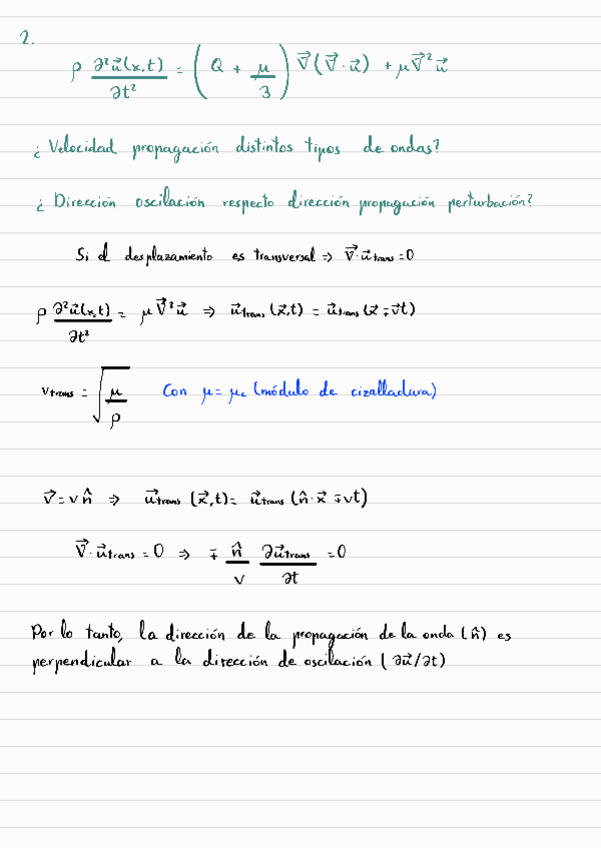 2.
ρ ∂²u⃗(x,t)/∂t² = (Q + μ/3) ∇⃗(∇⃗·u⃗) + μ∇⃗²u⃗
¿ Velocidad propagación distintos tipos de ondas?
¿ Dirección oscilación respecto dirección propagación perturbación?
Si el desplazamiento es transversal ⇒ ∇⃗·u⃗trans = 0
ρ ∂²u⃗(x,t)/∂t² = μ∇⃗²u⃗ ⇒ u⃗trans (x⃗,t) = u⃗trans (x⃗ ∓ v⃗t)
vtrans = √(μ/ρ) Con μ = μc (módulo de cizalladura)
v⃗ = v n̂ ⇒ u⃗trans (x⃗,t) = u⃗trans (n̂·x⃗ ∓ vt)
∇⃗·u⃗trans = 0 ⇒ ∓ n̂/v ∂u⃗trans/∂t = 0
Por lo tanto, la dirección de la propagación de la onda (n̂) es
perpendicular a la dirección de oscilación (∂u⃗/∂t)